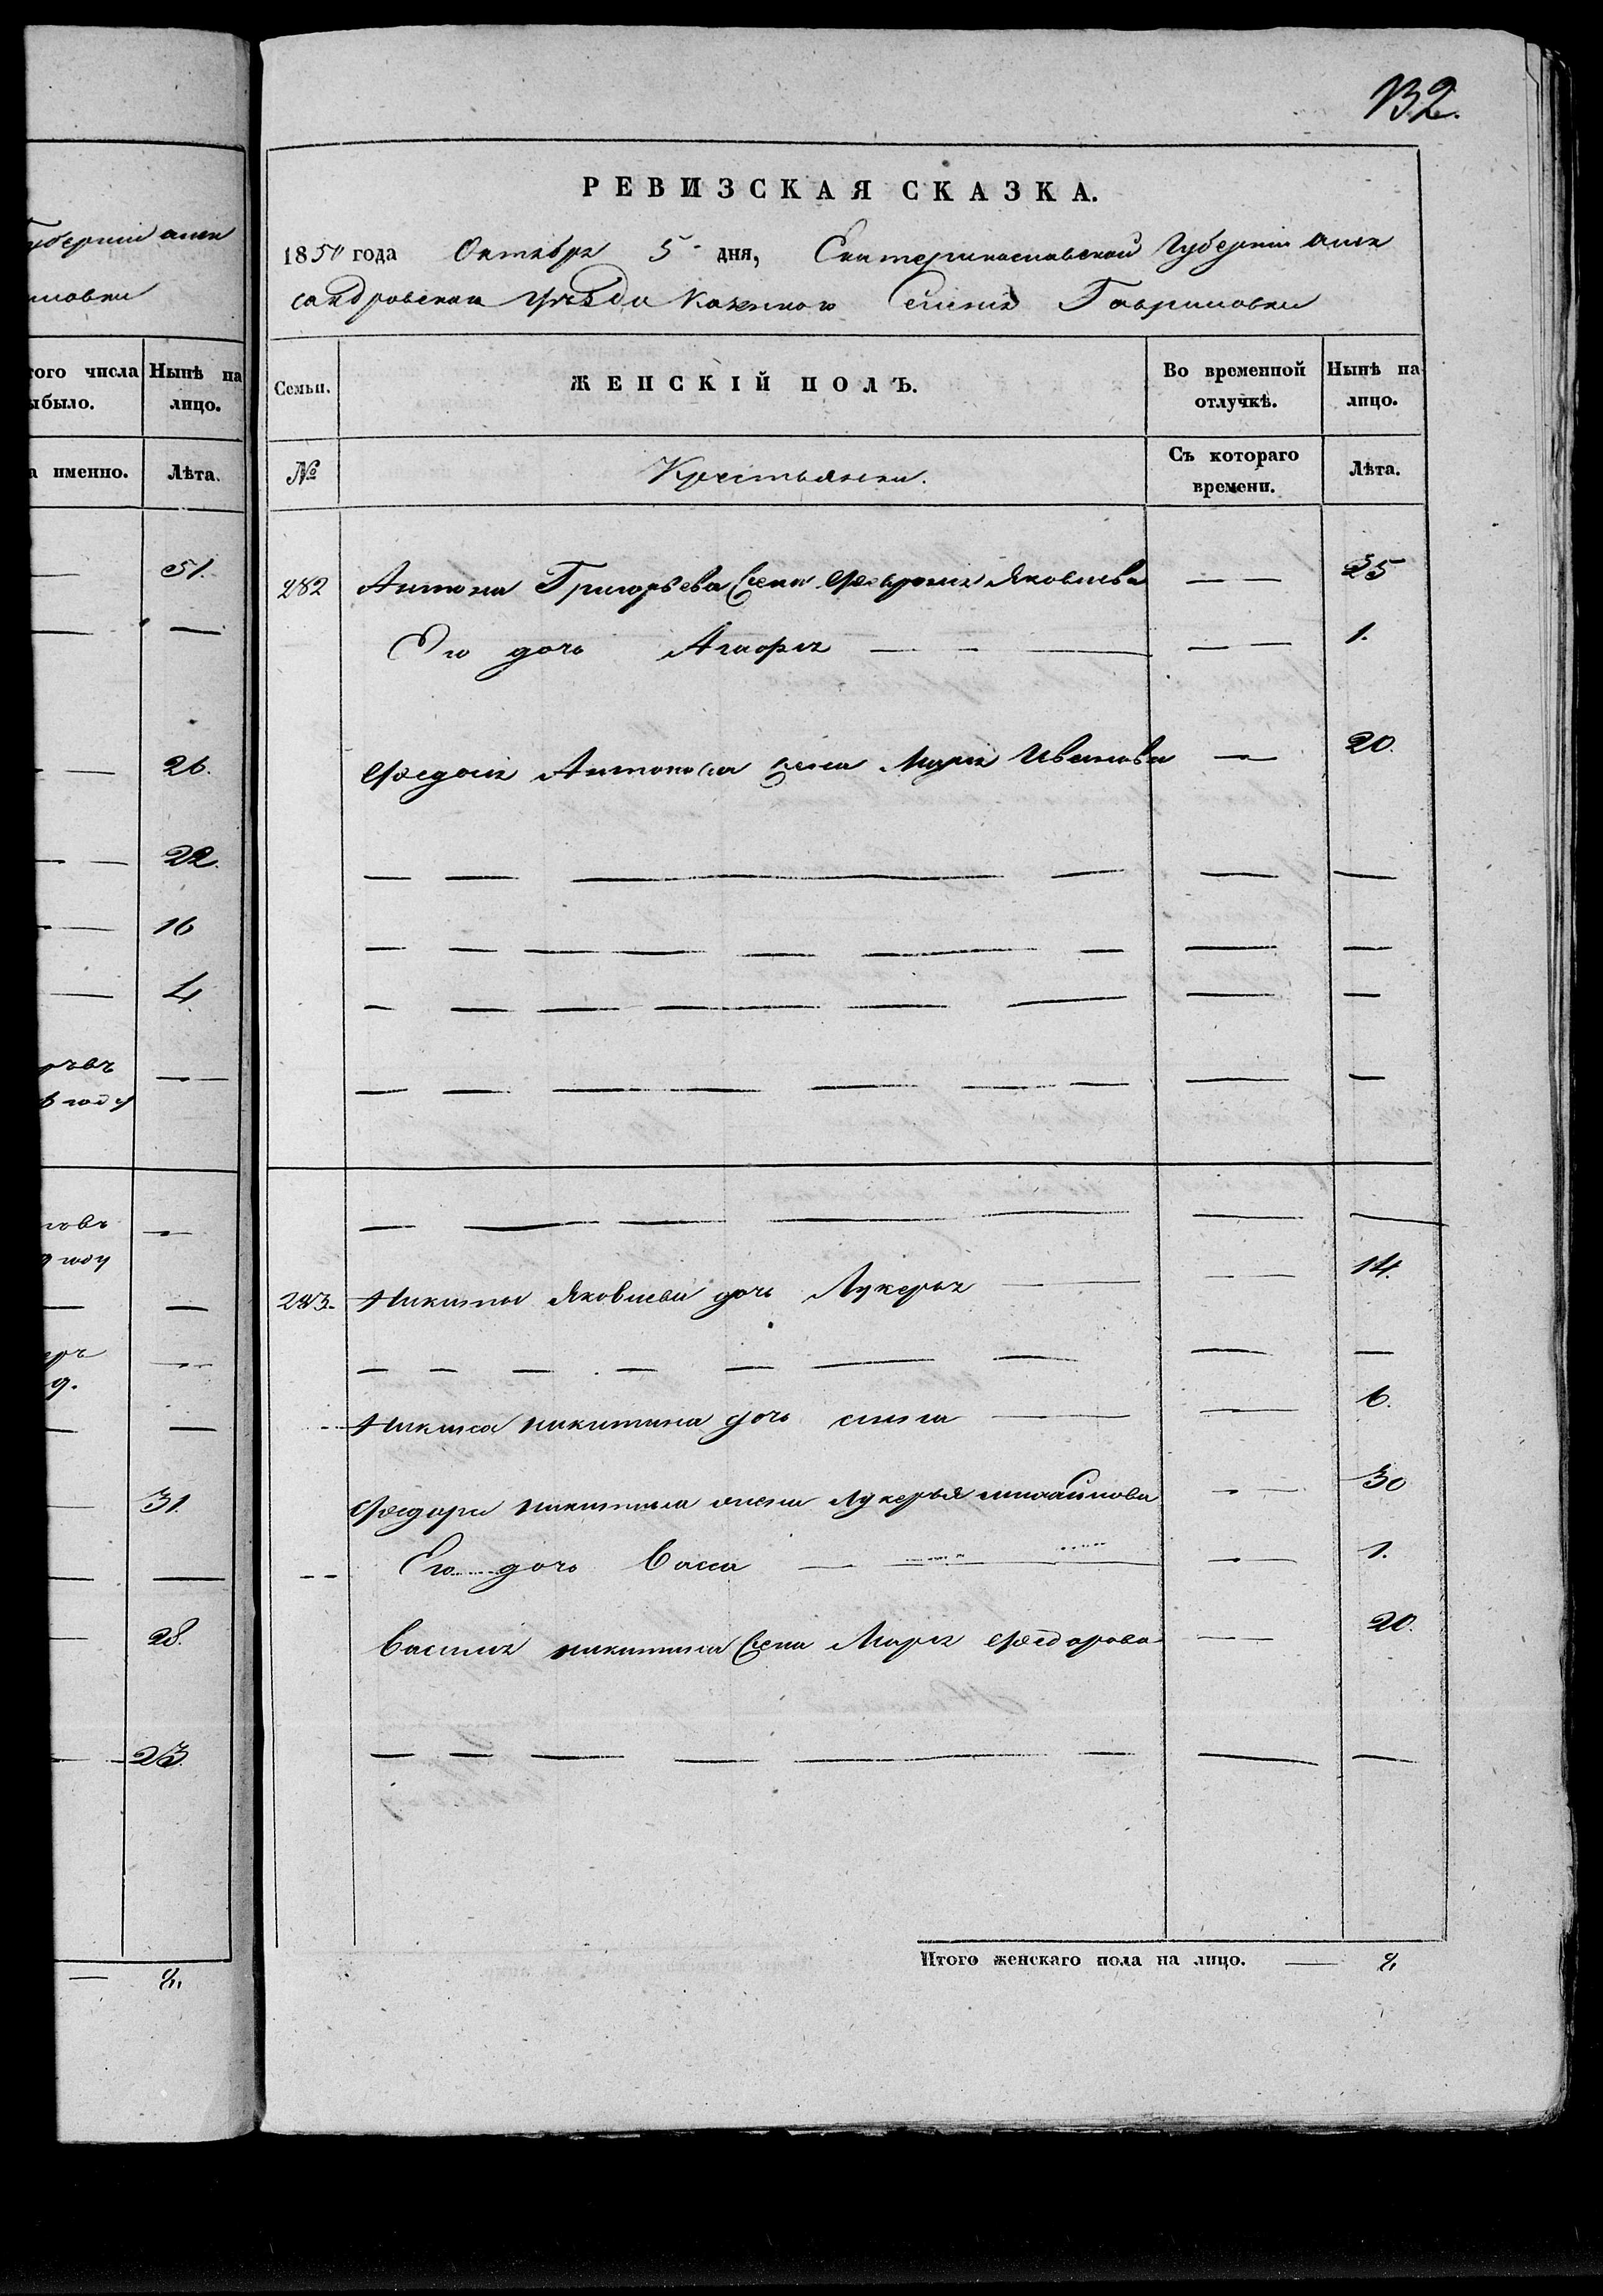 убернии алек
иловки
того числа Нынѣ на
ыбыло. лицо.
а именно. Лѣта.
51.
26.
22.
16
4
в году
31.
28.
23.
8.
132.
РЕВИЗСКАЯ СКАЗКА.
1850 года Октября 5 дня, Екатеринославской Губернии Алек
сандровскаго Уѣзда Казенного Селения Гавриловки
Семьи. ЖЕНСКІЙ ПОЛЪ. Во временной отлучкѣ. Нынѣ на лицо.
№ Крестьянки. Съ котораго времени. Лѣта.
282 Антона Григорьева жена Февронья Яковлева — — 35
Его дочь — — — — — 1.
Федося Антонова жена Марья Иванова — 20.
— — — — — —
— — — — — — — — —
— — — — — — — —
— — — — — — — —
— — — — — — —
243. Никиты Яковлева дочь Лукерья — — — 14.
— — — — — — — — —
Никиты дочь — — 6.
Федора Никитина жена Лукерья Михайлова — — 30
Его дочь Васса — — — — 1.
Василия Никитина жена Марья Федорова — — 20.
— — — — — — — —
Итого женскаго пола на лицо. — 8.